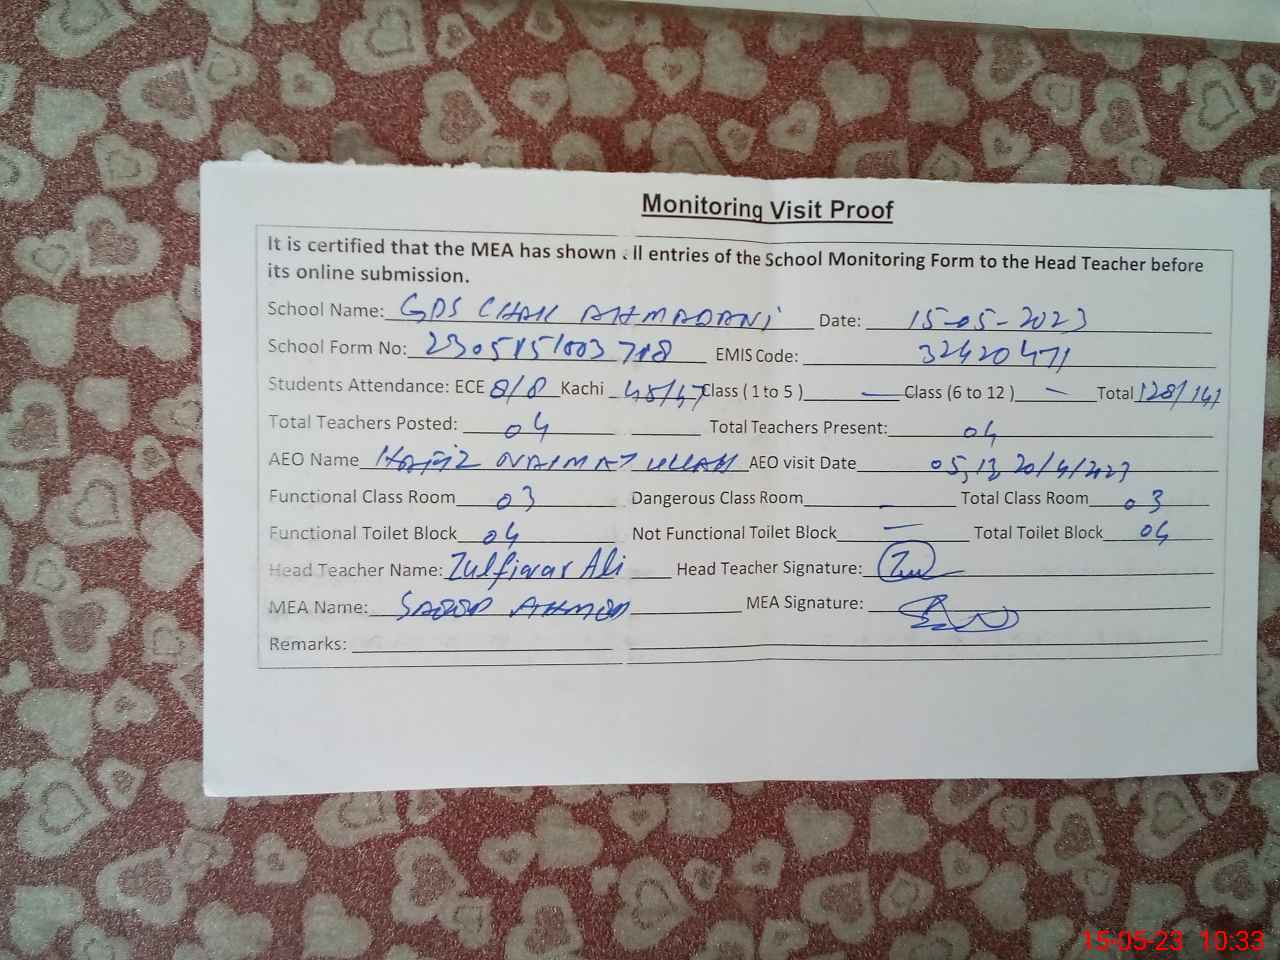 Monitoring Visit Proof
It is certified that the MEA has shown all entries of the School Monitoring Form to the Head Teacher before
its online submission.
School Name: GPS CHAK AHMADANI Date: 15-05-2023
School Form No: 2305151003718 EMIS Code: 32420471
Students Attendance: ECE 8/8 Kachi 45/47 Class ( 1 to 5 ) — Class (6 to 12 ) — Total 128/141
Total Teachers Posted: 04 Total Teachers Present: 04
AEO Name HAFIZ NAIMAT ULLAH AEO visit Date 05,13,20/4/2023
Functional Class Room 03 Dangerous Class Room - Total Class Room 03
Functional Toilet Block 04 Not Functional Toilet Block — Total Toilet Block 04
Head Teacher Name: Zulfiqar Ali Head Teacher Signature:
MEA Name: SAEED AHMED MEA Signature:
Remarks:
15-05-23 10:33